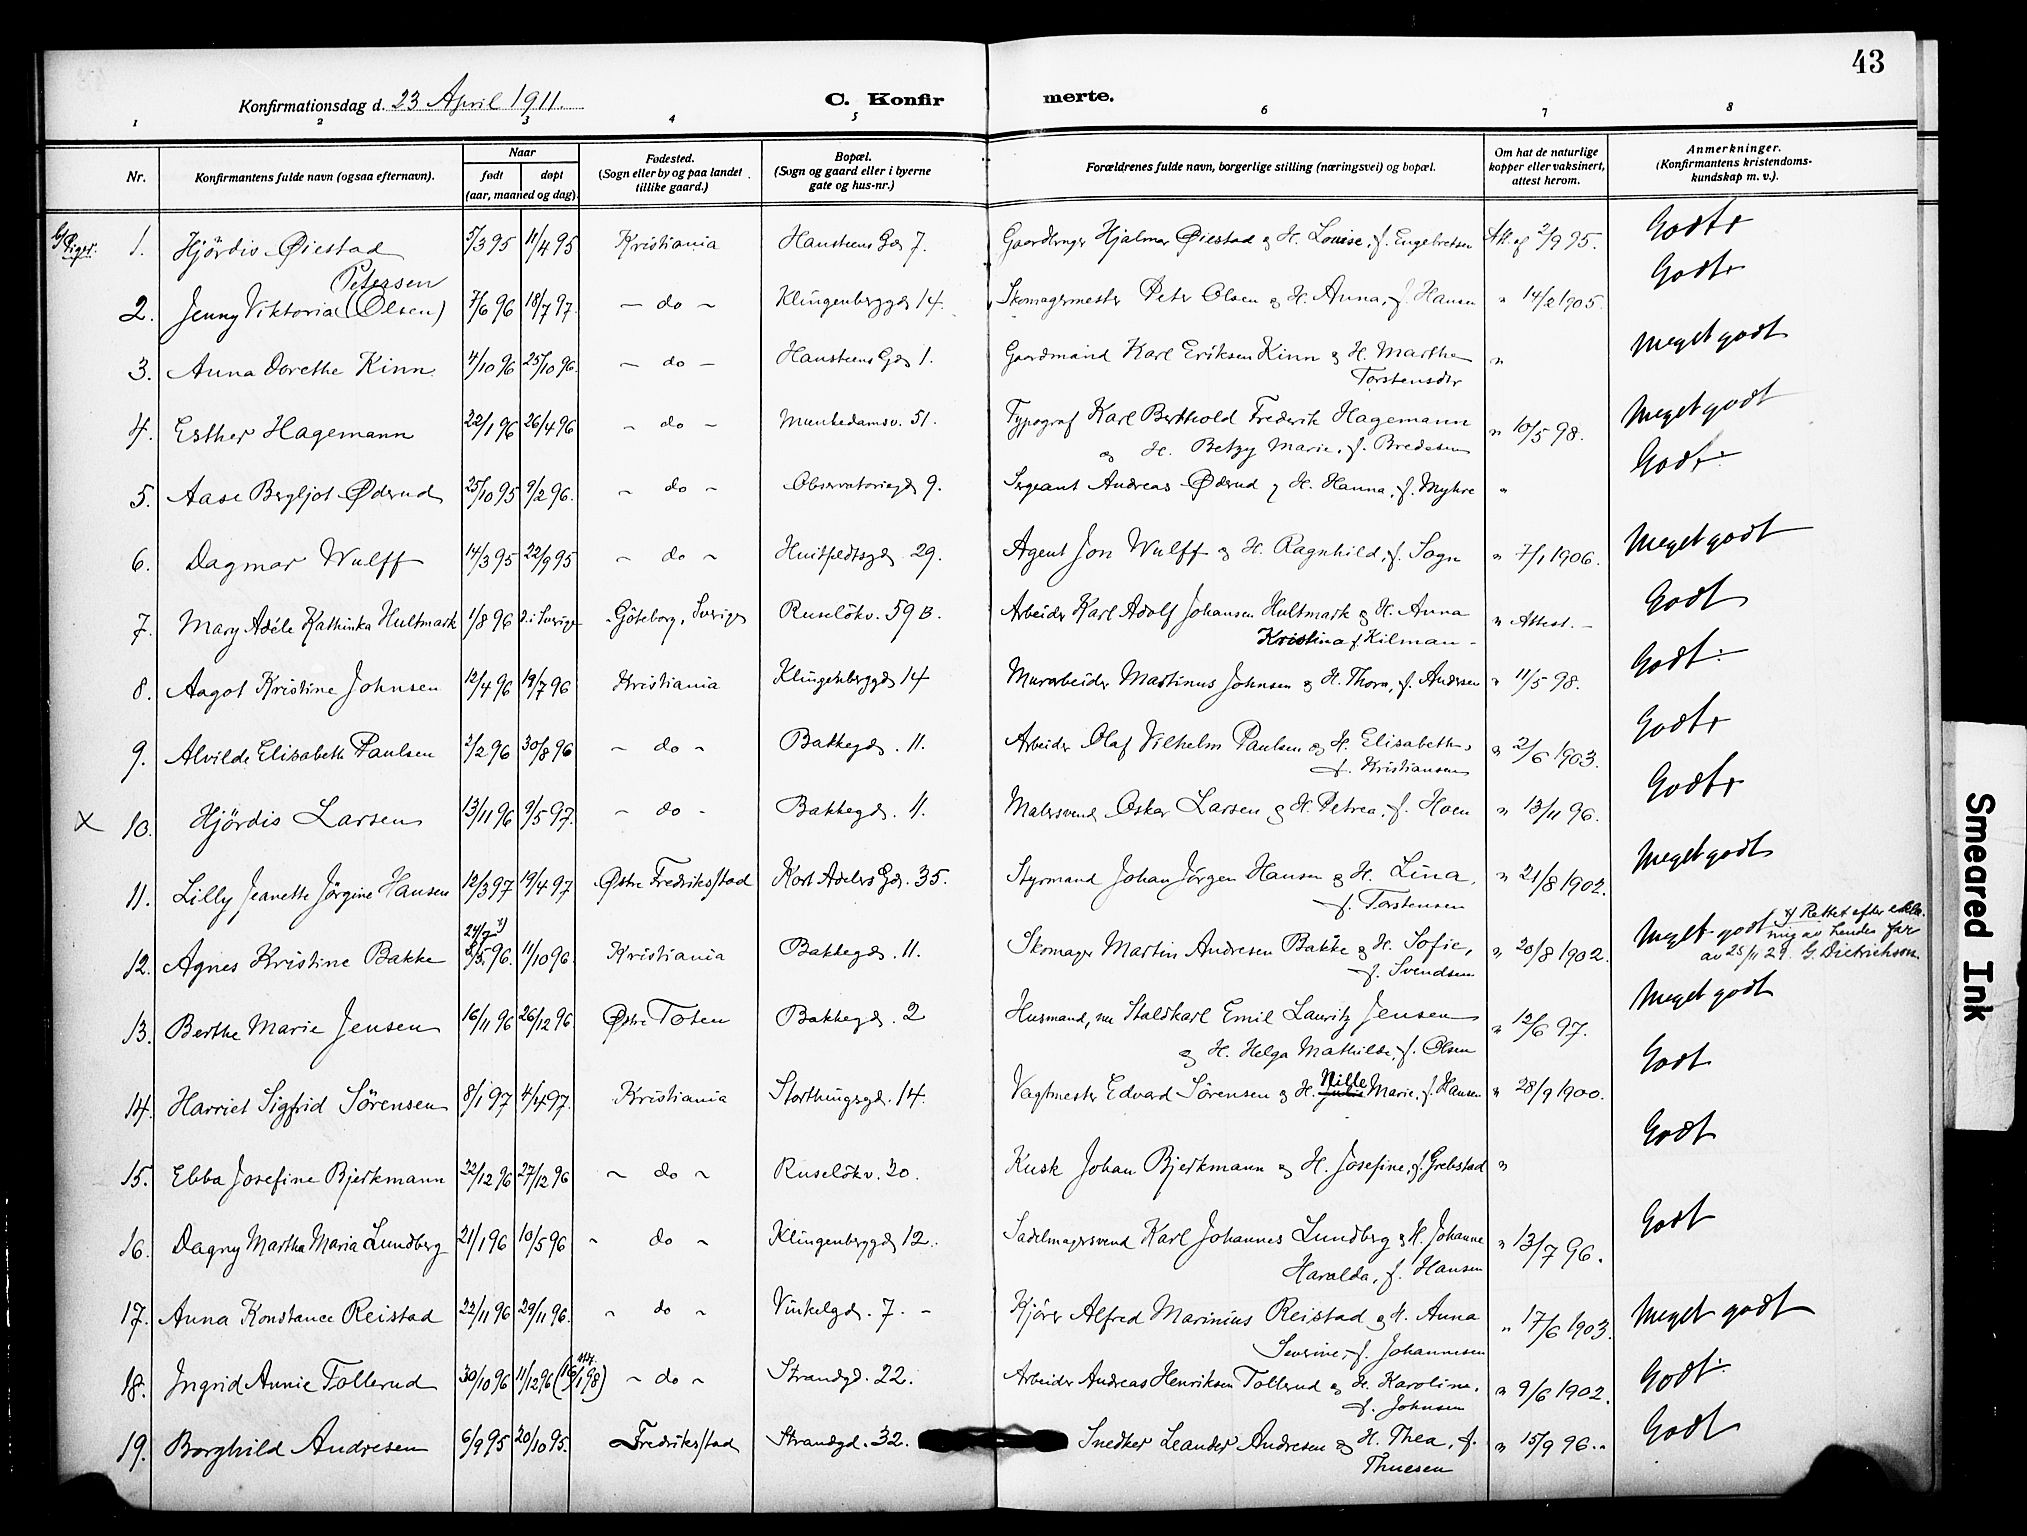 43
Konfirmationsdag d. 23 April 1911. C. Konfirmerte.
1 2 3 4 5 6 7 8
Nr. Konfirmantens fulde navn (ogsaa efternavn). Naar født døpt (aar, maaned og dag) Fødested. (Sogn eller by og paa landet tillike gaard.) Bopæl. (Sogn og gaard eller i byerne gate og hus-nr.) Forældrenes fulde navn, borgerlige stilling (næringsvei) og bopæl. Om hat de naturlige kopper eller vaksinert, attest herom. Anmerkninger. (Konfirmantens kristendomskundskap m. v.).
b) Piger.
1. Hjördis Øiestad 5/3 95 11/4 95 Kristiania Hansteens Gd. 7. Hjalmar Øiestad & H. Louise, f. Engebretsen Att. af 2/9 95. Godt+
2. Jenny Viktoria Petersen (Olsen) 7/6 96 18/7 97. - do - Klingenberggd. 14. Skomagermester Peter Olsen & H. Anna, f. Hansen " 14/2 1905. Godt+
3. Anna Dorethe Kinn. 4/10 96 25/10 96. - do - Hansteens Gd. 1. Gaardmand Karl Eriksen Kinn & H. Marthe "  Meget godt
Torstensdtr
4. Esther Hagemann 22/1 96 26/4 96 - do - Munkedamsv. 51. Typograf Karl Berthold Frederik Hagemann " 10/5 98. Meget godt
& H. Betzy Marie, f. Bredesen
5. Aase Bergljot Øderud 25/10 95 9/2 96. - do - Observatoriegd. 9. Sergeant Andreas Øderud & H. Hanna, f. Myhre " Godt÷
6. Dagmar Wulff 14/3 95 22/9 95 - do - Huitfeldtsgd. 29. Agent Jon Wulff & H. Ragnhild, f. Sogn " 7/1 1906. Meget godt
7. Mary Adéle Kathinka Hultmark 1/8 96 d. i Sverige Göteborg, Sverige Ruselökv. 59 B. Arbeider Karl Adolf Johansen Hultmark & H. Anna " Attest. - Godt
Kristina f. Kilman -
8. Aagot Kristine Johnsen 12/4 96 19/7 96 Kristiania Klingenberggd. 14 Murarbeider Martinus Johnsen & H. Thora, f. Andersen " 11/5 98. Godt÷
9. Alvilde Elisabeth Paulsen 2/2 96 30/8 96 - do - Bakkegd. 11. Arbeider Olaf Vilhelm Paulsen & H. Elisabeth, " 2/6 1903. Godt+
f. Kristiansen
X 10. Hjördis Larsen 13/11 96 9/5 97. - do - Bakkegd. 11. Malersvend Oskar Larsen & H. Petrea, f. Hoen " 13/11 96. Godt+
11. Lilly Jeanette Jörgine Hansen 12/3 97 19/4 97 Østre Fredriksstad Kort Adelers Gd. 35. Styrmand Johan Jörgen Hansen & H. Lina, " 21/8 1902. Meget godt
f. Torstensen
12. Agnes Kristine Bakke 24/7 x) 96. 11/10 96. Kristiania Bakkegd. 11. Skomager Martin Andresen Bakke & H. Sofie, " 20/8 1902. Meget godt x) Rettet efter erklæring av hendes far
f. Svendsen av 25/11 29. G. Dietrichson
13. Berthe Marie Jensen 16/11 96 26/12 96. Østre Toten Bakkegd. 2 Husmand, nu Staldkarl Emil Lauritz Jensen " 12/6 97. Meget godt
& H. Helga Mathilde, f. Olsen
14. Harriet Sigfrid Sörensen 8/1 97 4/4 97. Kristiania Storthingsgd. 14. Vagtmester Edvard Sörensen & H. Nille Marie, f. Hansen " 28/9 1900. Godt
15. Ebba Josefine Bjerkmann 22/12 96 27/12 96 - do - Ruselökv. 30. Kusk Johan Bjerkmann & H. Josefine, f. Grebstad " Godt
16. Dagny Martha Maria Lundberg 21/1 96 10/5 96 - do - Klingenberggd. 12. Sadelmagersvend Karl Johannes Lundberg & H. Johanne " 13/7 96. Godt
Haralda, f. Hansen
17. Anna Konstance Reistad 22/11 96 29/11 96. - do - Vinkelgd. 7. - Kjörer Alfred Marinius Reistad & H. Anna " 17/6 1903. Meget godt
Severine, f. Johannesen
18. Ingrid Annie Tollerud 30/10 96 11/12 96 (16/1 98) - do - Strandgd. 22. Arbeider Andreas Henriksen Tollerud & H. Karoline, " 9/6 1902. Godt÷
f. Johnsen
19. Borghild Andresen 6/9 95 20/10 95. Fredriksstad Strandgd. 32. Snedker Leander Andresen & H. Thea, f. " 15/9 96. Godt
Thuesen
Smeared Ink